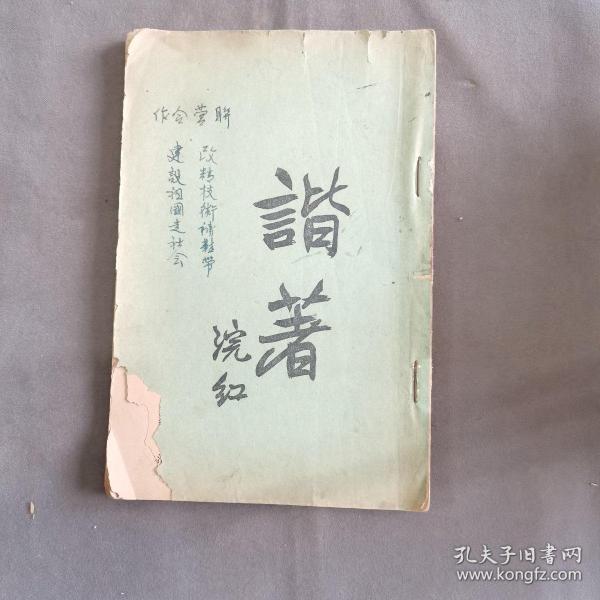 聯營合作
改精技術補鞋帶
建設祖國走社会
諧著
浣红
孔夫子旧書网
www.kongfz.com